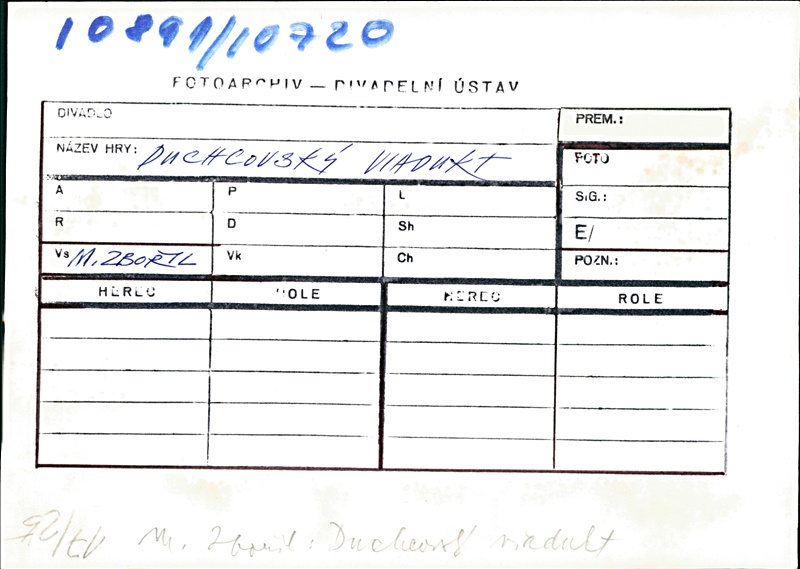 10891/10720
FOTOARCHIV — DIVADELNÍ ÚSTAV
DIVADLO
PREM.:
NÁZEV HRY: DUCHCOVSKÝ VIADUKT
FOTO
A P L
SIG.:
R D Sh
E/
Vs M. ZBOŘIL Vk Ch
POZN.:
HEREC ROLE HEREC ROLE
M. Zbořil: Duchcovský viadukt